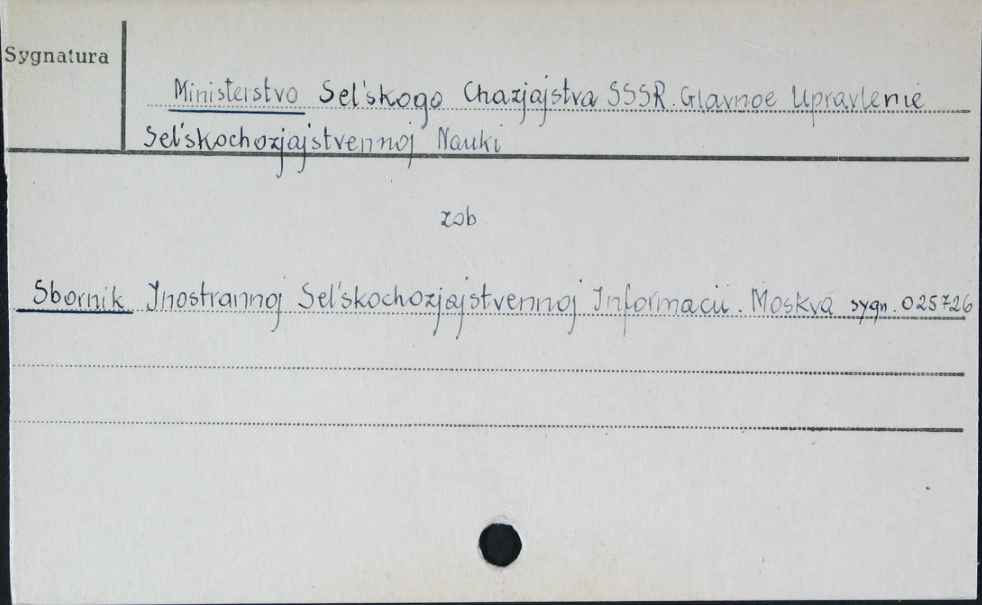 Sygnatura
Ministerstvo Sel'skogo Chazjajstva SSSR. Glavnoe Upravlenie
Sel'skochozjajstvennoj Nauki
zob
Sbornik Jnostrannoj Sel'skochozjajstvennoj Jnformacii. Moskva sygn. 025726